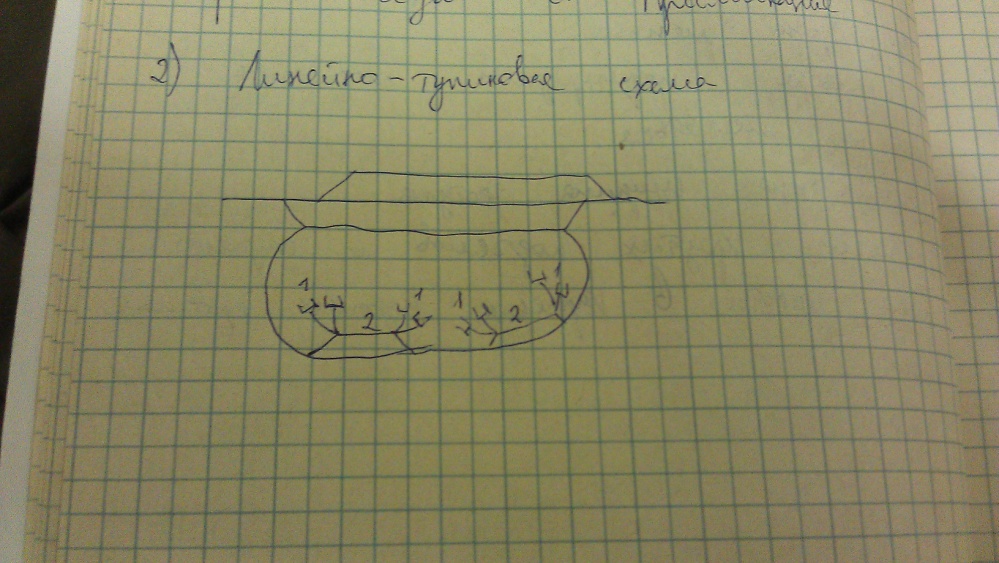 2) Линейно-тупиковая схема
1 1 1 1
2 2